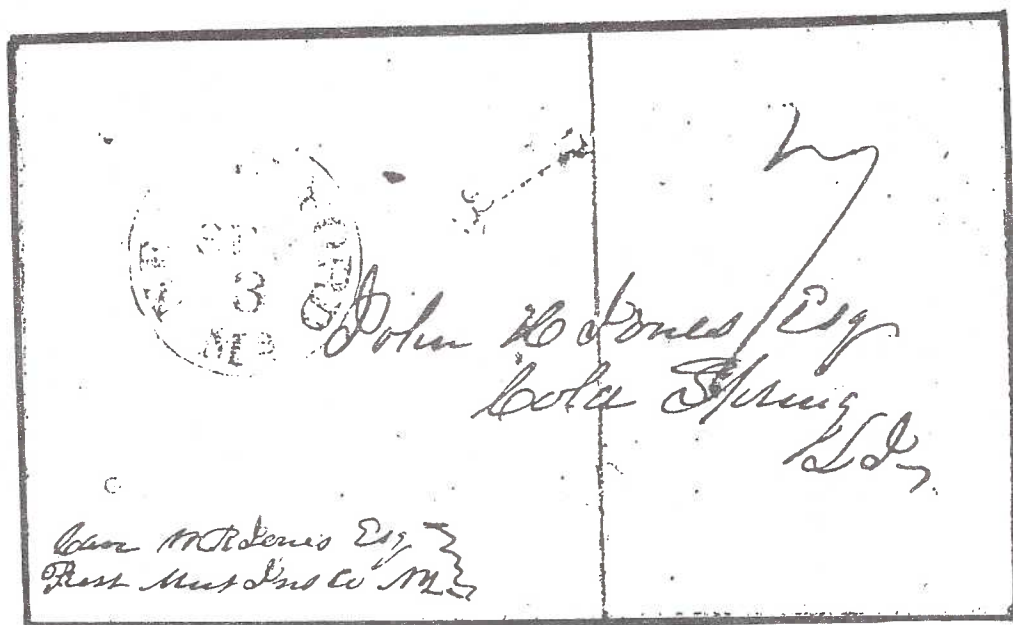 3
John H Jones Esq
Cold Spring
L I
Care W R Jones Esq
Prest Mut Ins Co NY